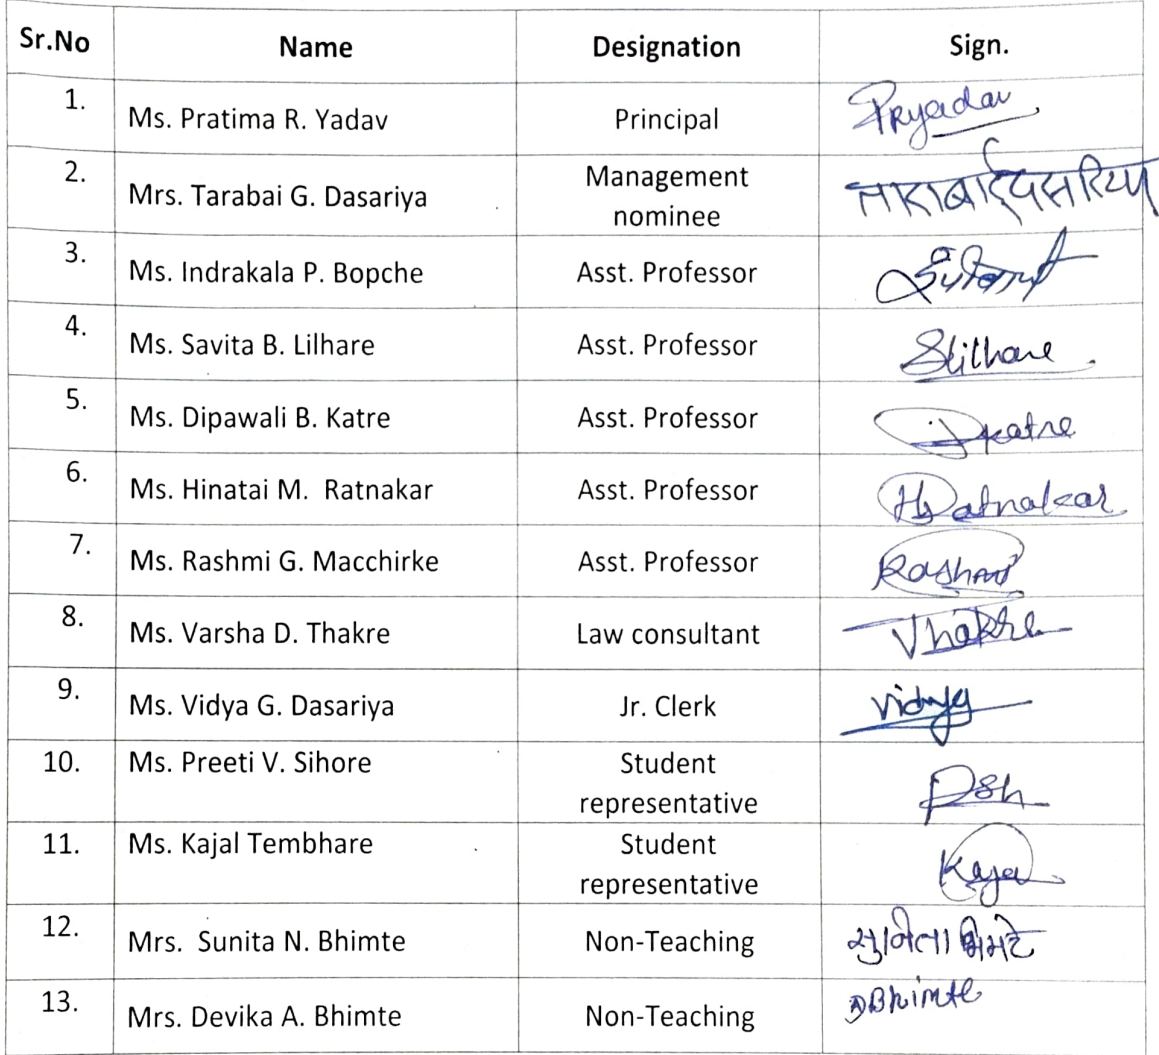 Sr.No Name Designation Sign.
1. Ms. Pratima R. Yadav Principal PRyadav
2. Mrs. Tarabai G. Dasariya Management nominee ताराबाई दसरिया
3. Ms. Indrakala P. Bopche Asst. Professor
4. Ms. Savita B. Lilhare Asst. Professor Slilhare
5. Ms. Dipawali B. Katre Asst. Professor Dkatre
6. Ms. Hinatai M. Ratnakar Asst. Professor HRatnakar
7. Ms. Rashmi G. Macchirke Asst. Professor Rashmi
8. Ms. Varsha D. Thakre Law consultant Vhakre
9. Ms. Vidya G. Dasariya Jr. Clerk Vidya
10. Ms. Preeti V. Sihore Student representative Psh
11. Ms. Kajal Tembhare Student representative Kajal
12. Mrs. Sunita N. Bhimte Non-Teaching सुनिता भिमटे
13. Mrs. Devika A. Bhimte Non-Teaching DBhimte